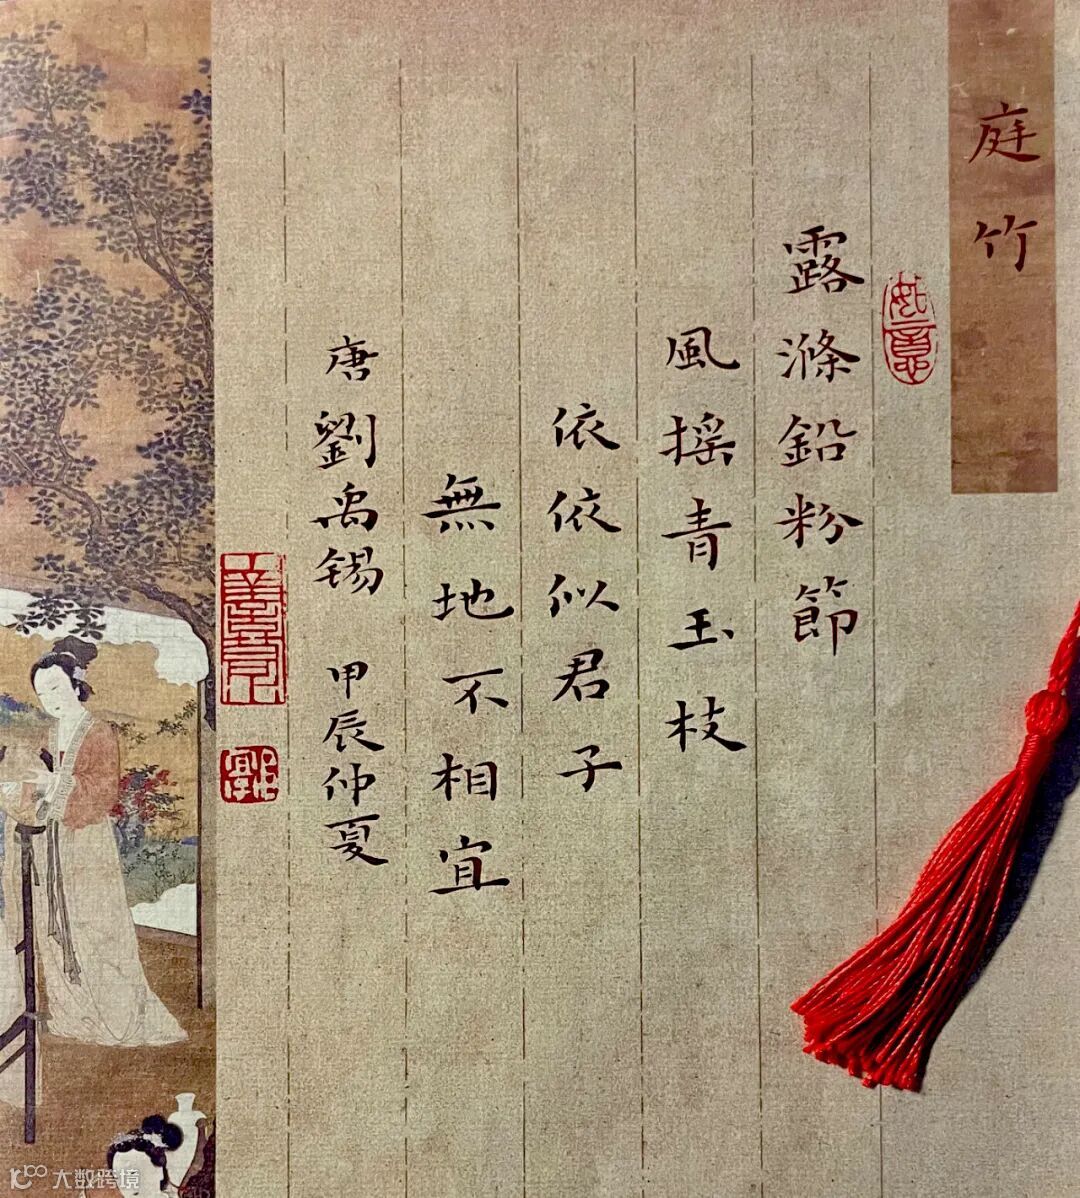 庭竹
如意
露滌鉛粉節
風摇青玉枝
依依似君子
無地不相宜
唐劉禹锡 甲辰仲夏
大数跨境